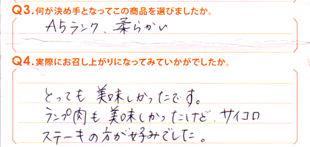 Q3.何が決め手となってこの商品を選びましたか。
A5ランク、柔らかい
Q4.実際にお召し上がりになってみていかがでしたか。
とっても美味しかったです。
ランプ肉も美味しかったけど、サイコロ
ステーキの方が好みでした。